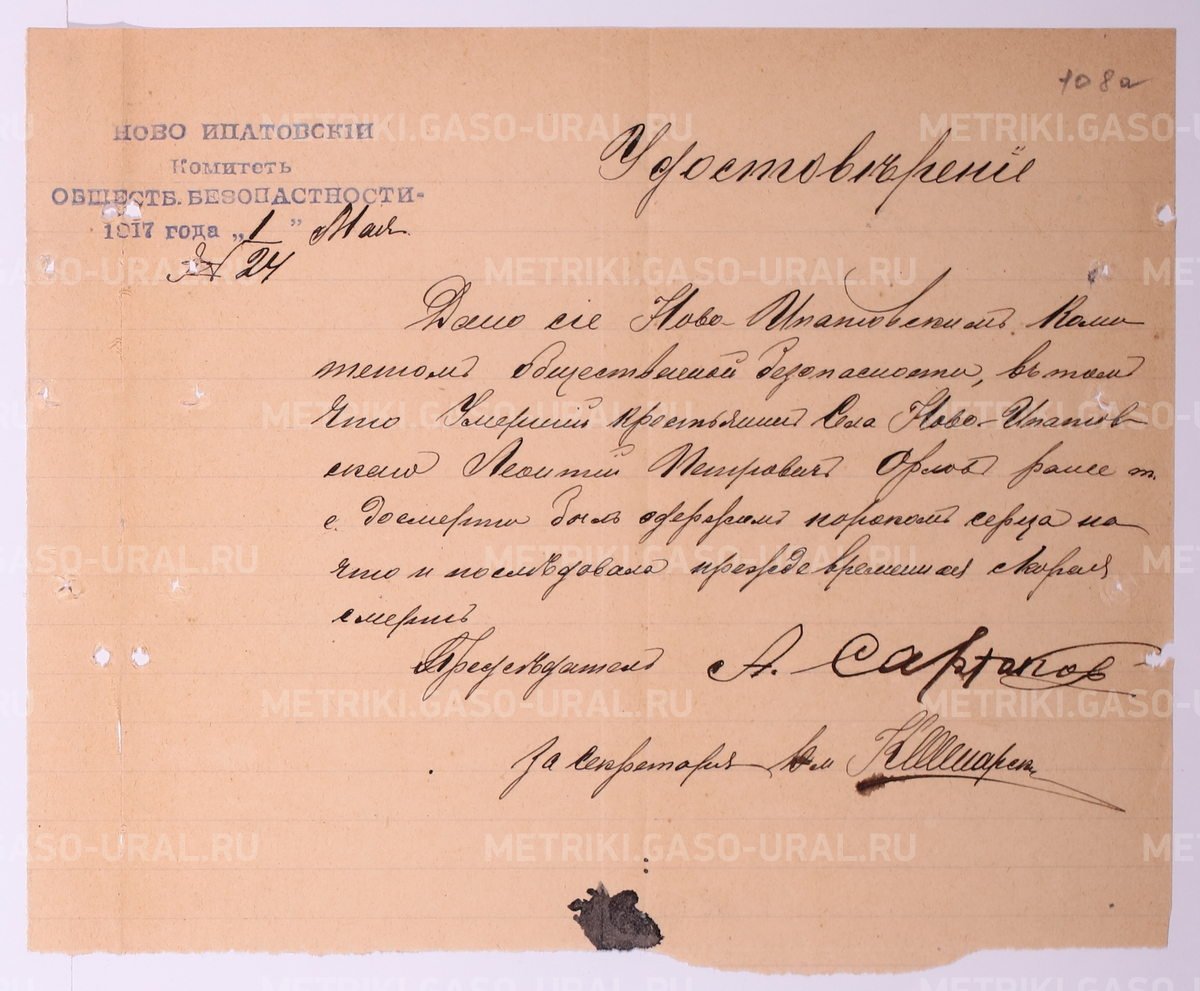 108а
НОВО ИПАТОВСКІЙ
Комитетъ
ОБЩЕСТВ. БЕЗОПАСТНОСТИ-
1917 года „1" Мая
№ 24
Удостовѣреніе
Дано сіе Ново-Ипатовскимъ Коми
тетомъ общественной безопасности, въ томъ
что Умершій крестьянинъ Села Ново-Ипатов-
скаго Леонтій Петровичъ Орловъ ранее т.
е. досмерти былъ одержимъ порокомъ серца на
что и последовала преждевременная скорая
смерть
Председатель А. Сартаков
За секретаря
METRIKI.GASO-URAL.RU